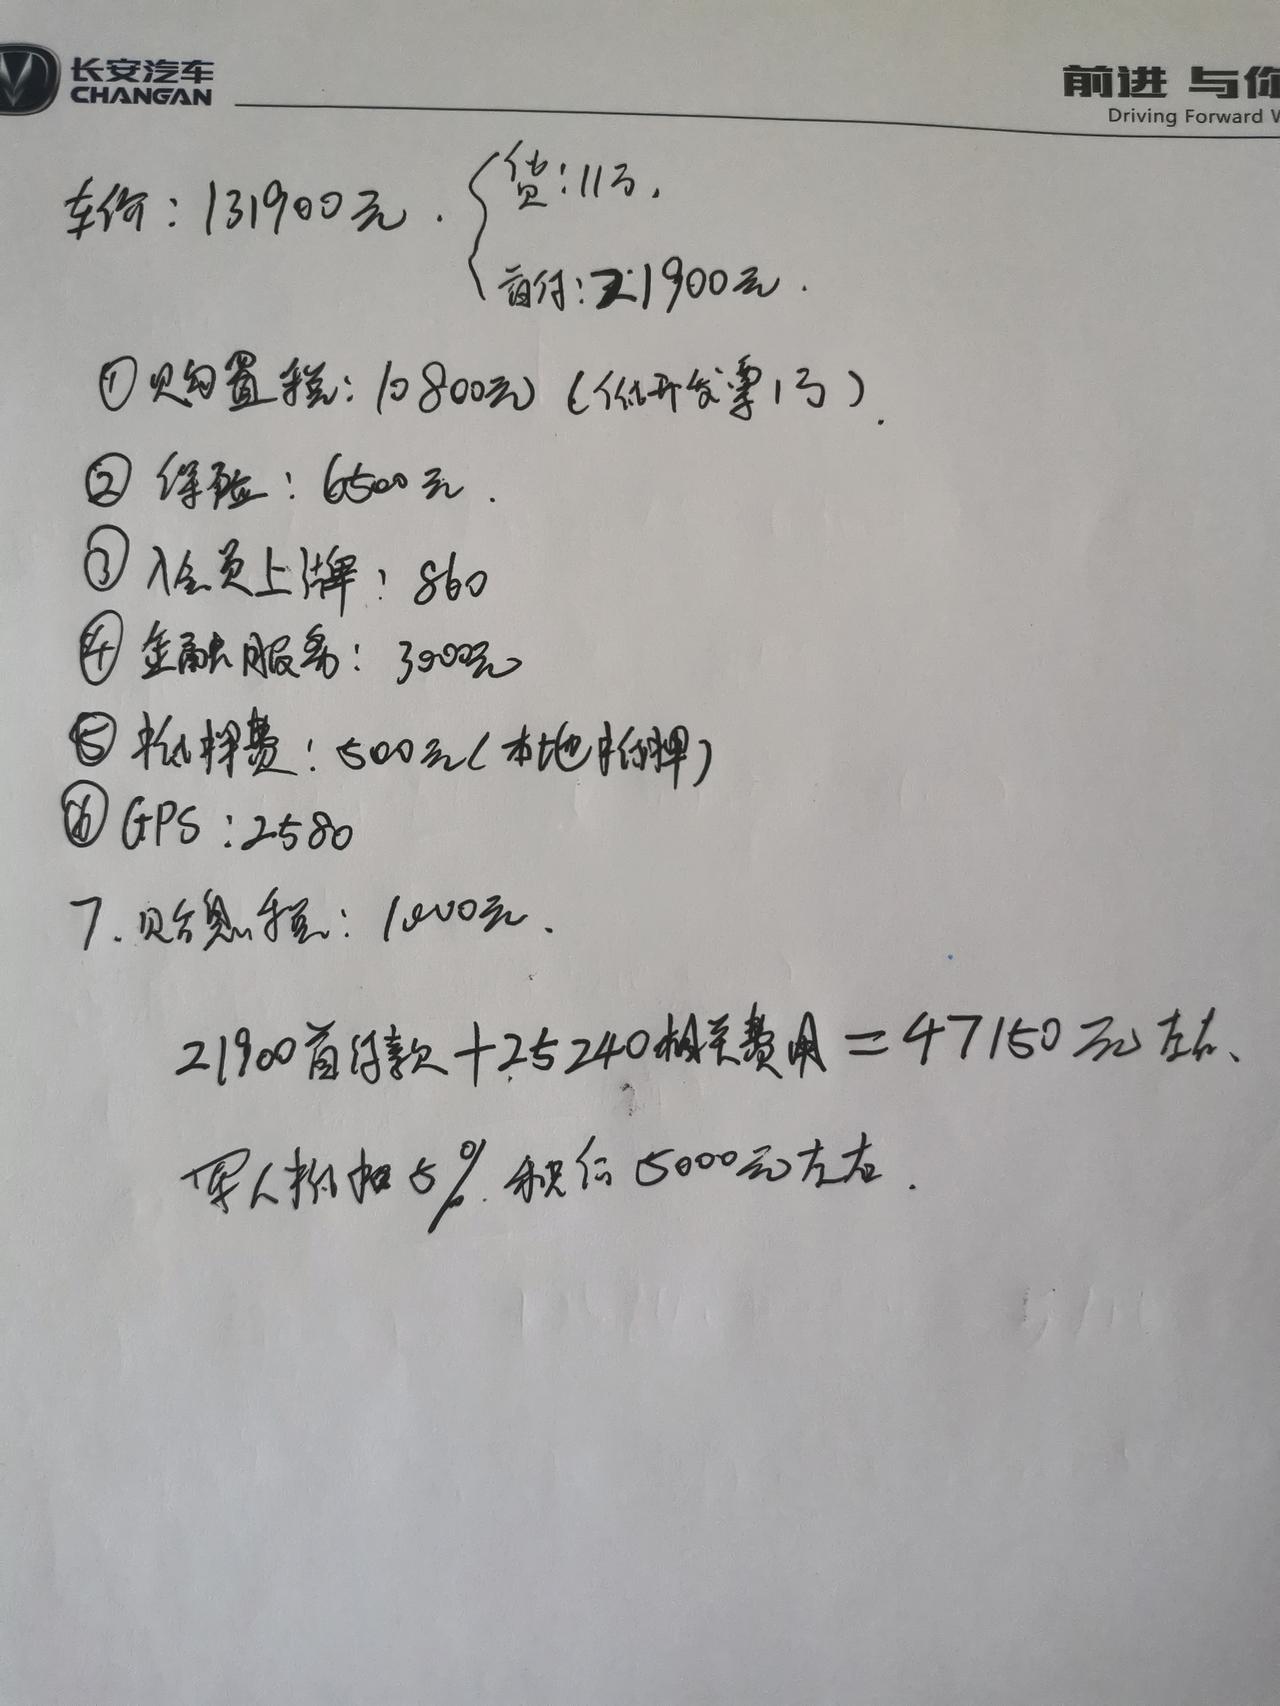 长安汽车
CHANGAN
前进 与你
Driving Forward W
车价：131900元.
贷：11万.
首付：21900元.
①购置税：10800元（低开发票1万）.
②保险：6500元.
③入会员上牌：860
④金融服务：3000元
⑤抵押费：500元（本地抵押）
⑥GPS：2580
7.贴息税：1000元.
21900首付款+25240相关费用=47150元左右、
军人折扣5% 积分5000元左右.